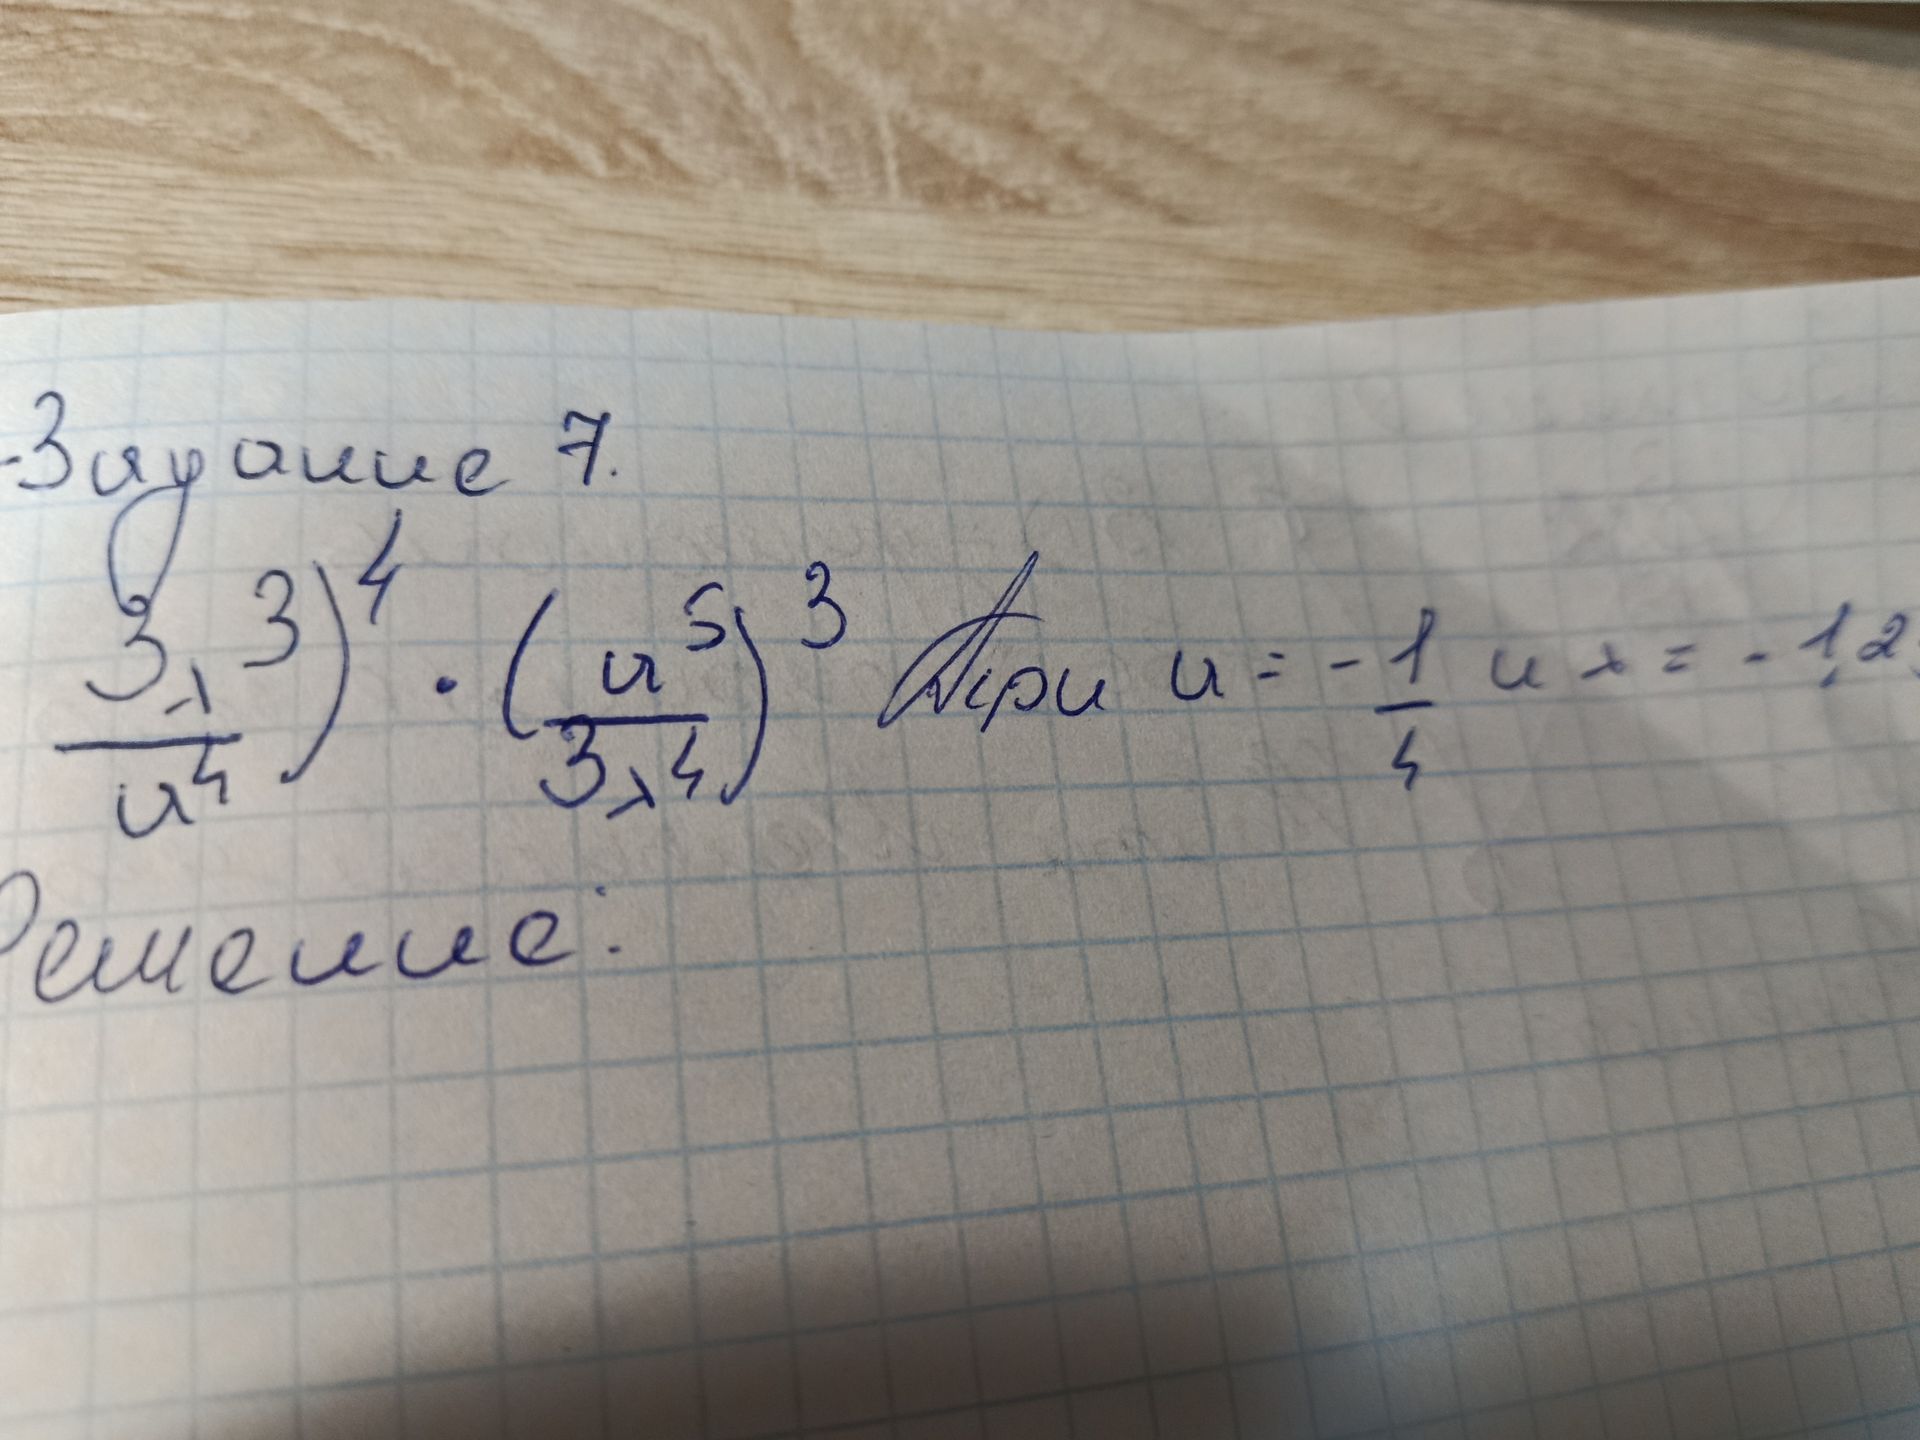 Задание 7.
3x^3/a^4)^4 · (a^5/3x^4)^3 При a = -1/4 и x = -1,2
Решение: